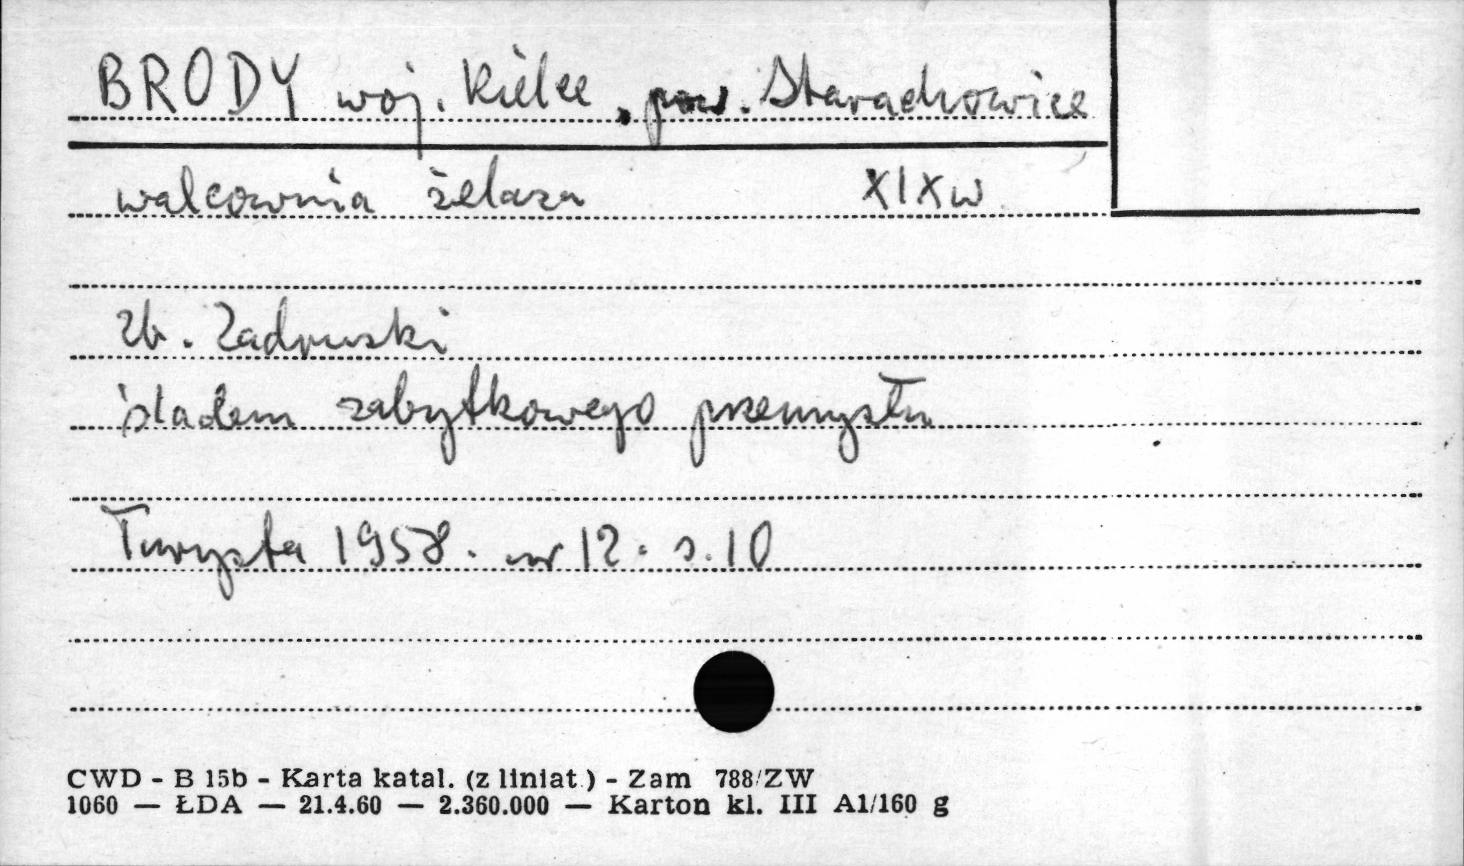 BRODY woj. Kielce, pow. Starachowice
walcownia żelaza XIXw
Zb.
śladem zabytkowego przemysłu
Turysta 1958. nr 12. s. 10
CWD - B 15b - Karta katal. (z liniat.) - Zam 788/ZW
1060 — ŁDA — 21.4.60 — 2.360.000 — Karton kl. III A1/160 g